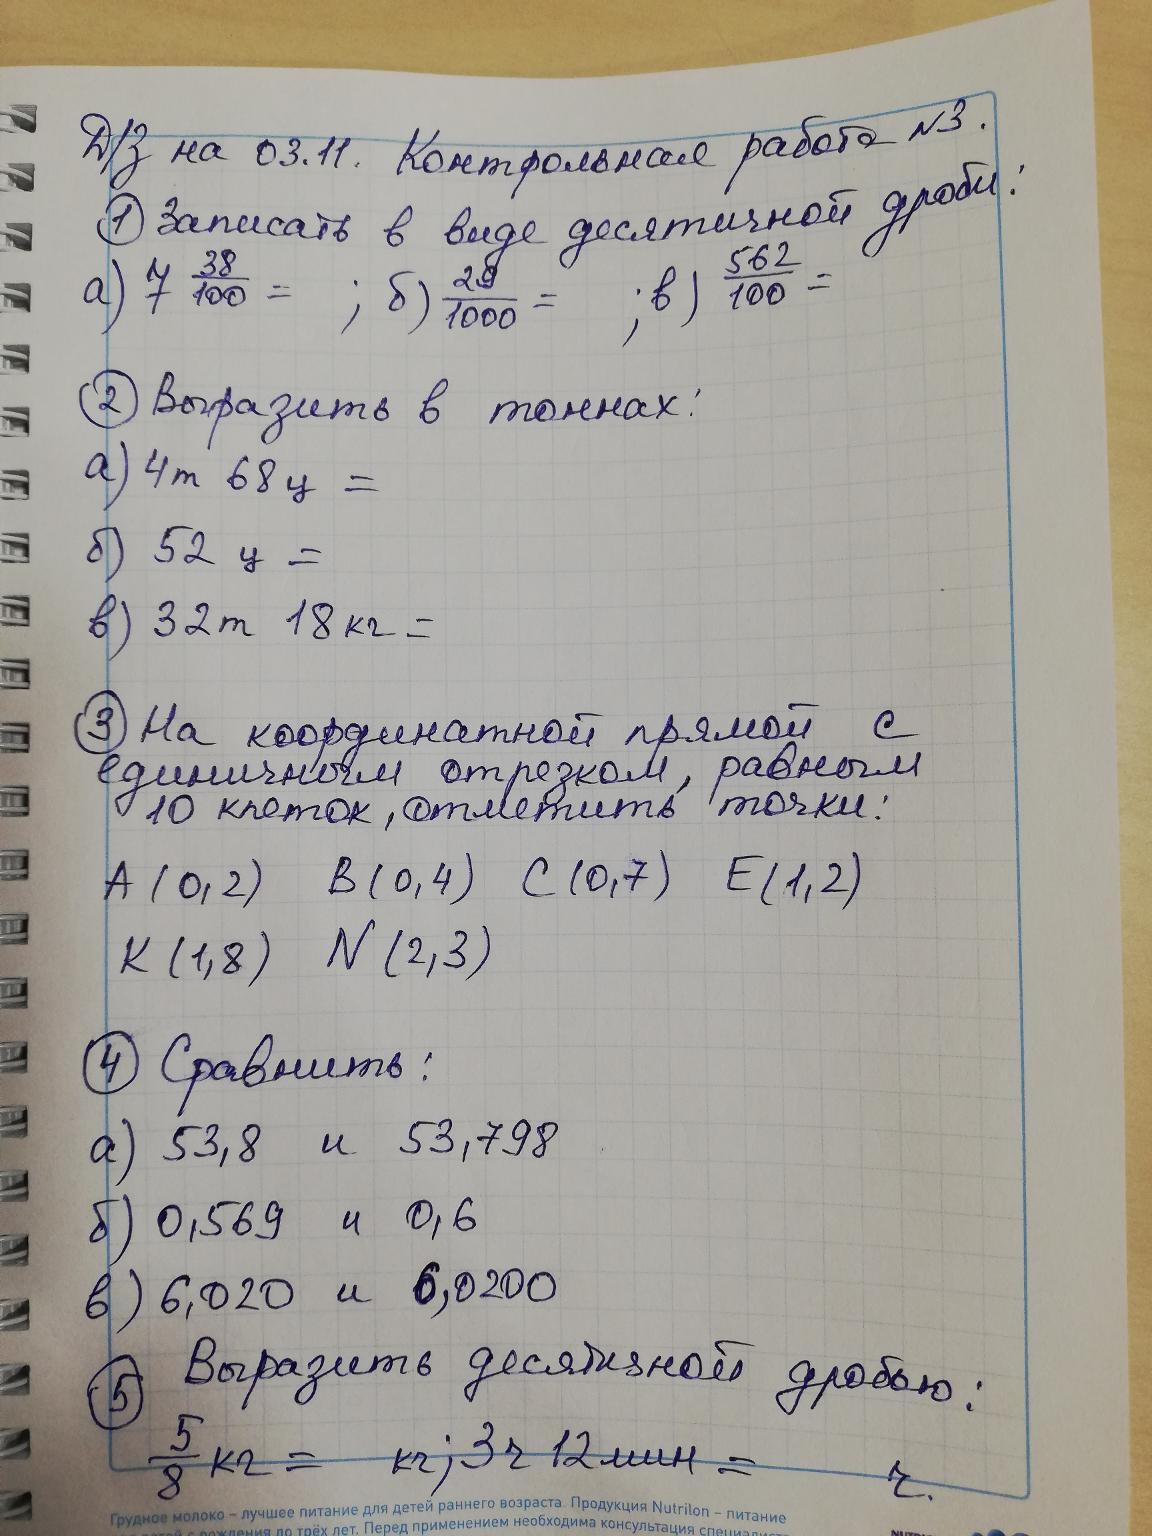 Д/З на 03.11. Контрольная работа №3.
① Записать в виде десятичной дроби:
а) 7 38/100 = ; б) 29/1000 = ; в) 562/100 =
② Выразить в тоннах:
а) 4т 68ц =
б) 52 ц =
в) 32т 18кг =
③ На координатной прямой с
единичным отрезком, равным
10 клеток, отметить точки:
A (0,2) B (0,4) C (0,7) E (1,2)
K (1,8) N (2,3)
④ Сравнить:
а) 53,8 и 53,798
б) 0,569 и 0,6
в) 6,020 и 6,0200
⑤ Выразить десятичной дробью:
5/8 кг = кг; 3ч 12 мин = ч.
Грудное молоко – лучшее питание для детей раннего возраста. Продукция Nutrilon – питание
с рождения до трёх лет. Перед применением необходима консультация